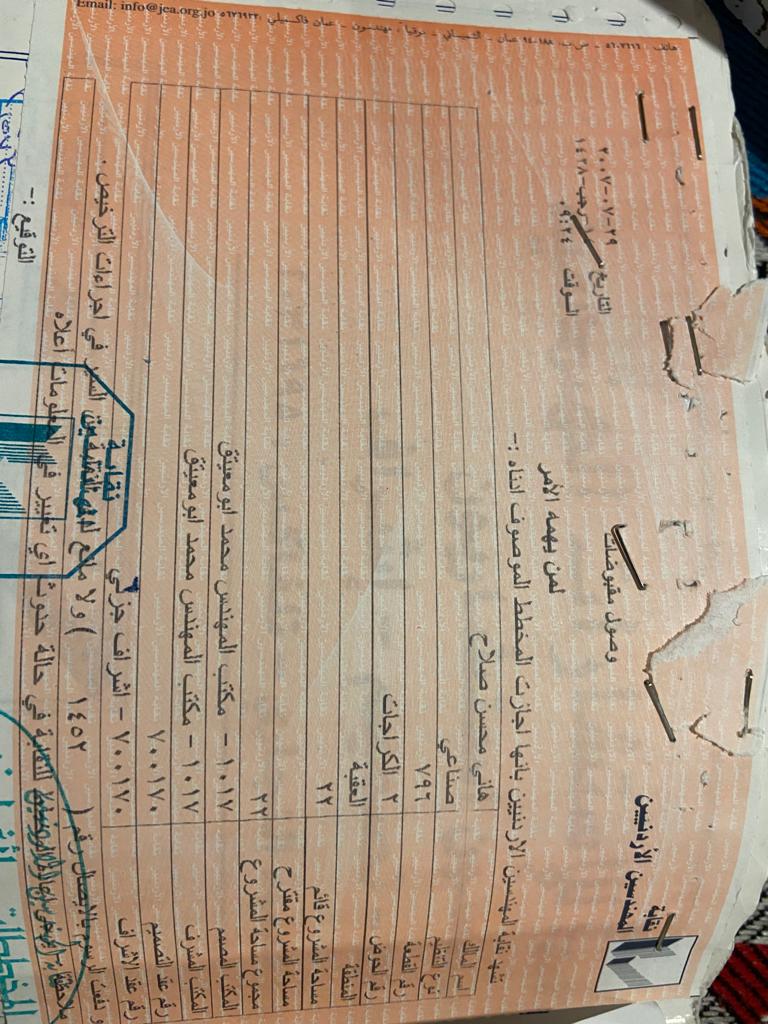 نقابة
المهندسين الأردنيين
وصول مقبوضات
٢٠٠٧-٠٧-٢٩
التاريخ
رجب-١٤٢٨
الوقت ٠٩:٢٤
لمن يهمه الأمر
تشهد نقابة المهندسين الاردنيين بانها اجازت المخطط الموصوف ادناه :-
اسم المالك هاني محسن صلاح
نوع التنظيم صناعي
رقم القطعة ٧٩٦
رقم الحوض ٢ الكراجات
المنطقة العقبة
مساحة المشروع قائم ٢٢
مساحة المشروع مقترح
مجموع مساحة المشروع ٢٢
المكتب المصمم ١٠١٧ - مكتب المهندس محمد ابو معيتق
المكتب المشرف ١٠١٧ - مكتب المهندس محمد ابو معيتق
رقم عقد التصميم ٧٠٠١٧٠
رقم عقد الاشراف ٧٠٠١٧٠ - اشراف جزئي
و دفعت الرسم بالايصال رقم ( ١٤٥٢ ) ولا مانع لدى النقابة من السير في اجراءات الترخيص .
للنقابة في حالة حدوث اي تغيير في المعلومات اعلاه
التوقيع :-
نقابة
هاتف ٥٦٠٧٦١٦ - ص.ب ٩٤٠١٨٨ عمان - الشميساني - برقيا، مهندسون - عمان فاكسميلي
Email: info@jea.org.jo